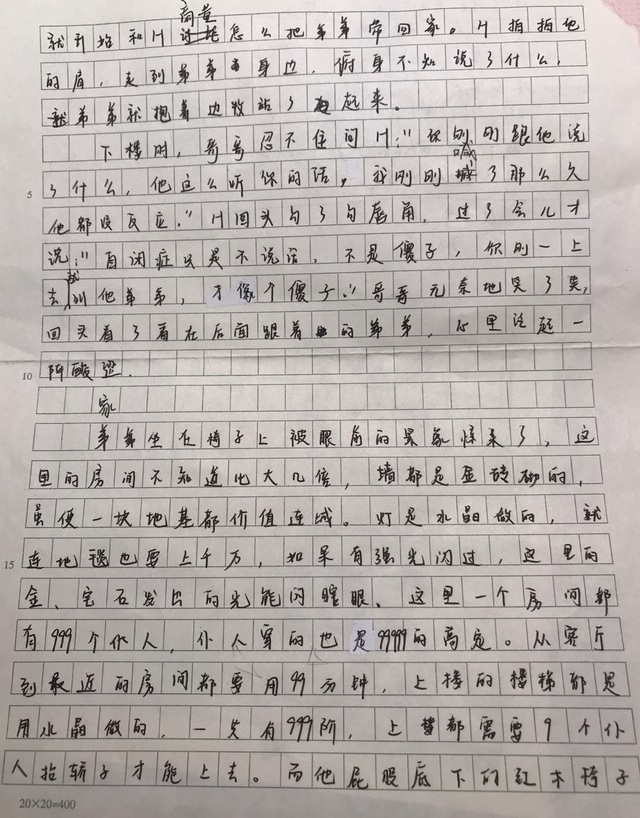 商量
就开始和H讨耗怎么把弟弟带回家。H拍拍他
的肩，走到弟弟身边，俯身不知说了什么，
就弟弟就抱着边牧站了起来。
下楼时，哥哥忍不住问H："你刚刚跟他说
喊
5 了什么，他这么听你的话，我刚刚喊了那么久
他都没反应。"H回头勾了勾唇角，过了会儿才
说："自闭症只是不说话，不是傻子，你刚一上
就
去叫他弟弟，才像个傻子。"哥哥无奈地笑了笑，
回头看了看在后面跟着的弟弟，心里泛起一
10 阵酸涩.
家
弟弟坐在椅子上被眼前的景象惊呆了，这
里的房间不知道比大几倍，墙都是金砖砌的，
虽便一块地基都价值连城。灯是水晶做的，就
15 连地毯也要上千万，如果有强光闪过，这里的
金、宝石发出的光能闪瞎眼。这里一个房间都
有999个仆人，仆人穿的也是99999的高定。从客厅
到最近的房间都要用99万钟，上楼的楼梯都是
用水晶做的，一共有999阶，上楼都需要9个仆
人抬轿子才能上去。而他屁股底下的红木椅子
20×20=400